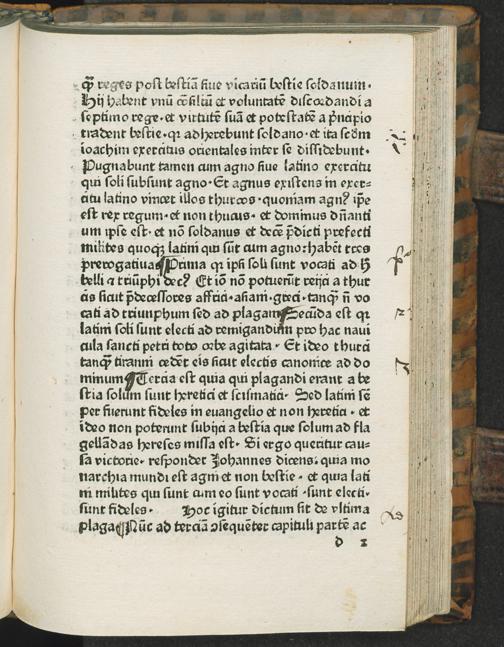 qꝫ reges post bestiā siue vicariū bestie soldanum·
Hij habent vnū cōsiliū et voluntatē discordandi a
septimo rege· et virtutē suā et potestatē a p̄ncipio
tradent bestie· qꝛ adherebunt soldano· et ita scđm
ioachim exercitus orientales inter se dissidebunt·
Pugnabunt tamen cum agno siue latino exercitu
qui soli subsunt agno· Et agnus existens in exer⸗
citu latino vincet illos thurcos· quoniam agnꝰ ip̄e
est rex regum· et non thucus· et dominus dn̄anti
um ipse est· et nō soldanus et decē p̄dicti prefecti
milites quoqꝫ latini qui sūt cum agno: habēt tres
prerogatiuas ¶Prima qꝛ ipsi soli sunt vocati ad hꝰ
belli ⁊ triūphi decꝰ Et iō nō potuerūt reijci a thur
cis sicut p̄decessores affrici· asiani· greci· tanqꝫ n̄ vo
cati ad triumphum sed ad plagam ¶Secūda est qꝛ
latini soli sunt electi ad remigandium pro hac naui
cula sancti petri toto orbe agitata· Et ideo thurci
tanqꝫ tiranni cedēt eis sicut electis canonice ad do
minum ¶Tercia est quia qui plagandi erant a be
stia solum sunt heretici et scismatici· Sed latini sē
per fuerunt fideles in euangelio et non heretici· et
ideo non poterunt subijci a bestia que solum ad fla
gellādas hereses missa est· Si ergo queritur cau⸗
sa victorie· respondet Johannes dicens: quia mo
narchia mundi est agni et non bestie· et quia lati
ni milites qui sunt cum eo sunt vocati· sunt electi·
sunt fideles· Hoc igitur dictum sit de vltima
plaga ¶Nūc ad terciā ɔsequēter capituli partē ac
d 2